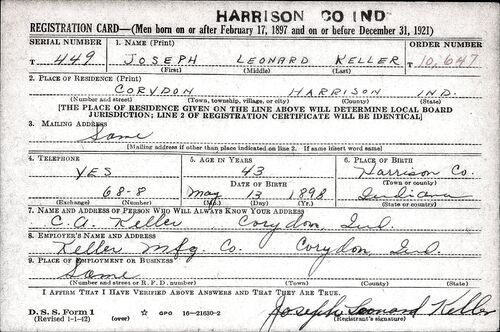 HARRISON CO IND
REGISTRATION CARD—(Men born on or after February 17, 1897 and on or before December 31, 1921)
SERIAL NUMBER 1. NAME (Print) ORDER NUMBER
T 449 JOSEPH LEONARD KELLER T 10,647
(First) (Middle) (Last)
2. PLACE OF RESIDENCE (Print)
CORYDON HARRISON IND.
(Number and street) (Town, township, village, or city) (County) (State)
[THE PLACE OF RESIDENCE GIVEN ON THE LINE ABOVE WILL DETERMINE LOCAL BOARD
JURISDICTION; LINE 2 OF REGISTRATION CERTIFICATE WILL BE IDENTICAL]
3. MAILING ADDRESS
Same
[Mailing address if other than place indicated on line 2. If same insert word same]
4. TELEPHONE 5. AGE IN YEARS 6. PLACE OF BIRTH
YES 43 Harrison Co.
DATE OF BIRTH (Town or county)
68-8 May 13 1898 Indiana
(Exchange) (Number) (Mo.) (Day) (Yr.) (State or country)
7. NAME AND ADDRESS OF PERSON WHO WILL ALWAYS KNOW YOUR ADDRESS
C. A. Keller Corydon, Ind.
8. EMPLOYER'S NAME AND ADDRESS
Keller Mfg. Co. Corydon, Ind.
9. PLACE OF EMPLOYMENT OR BUSINESS
Same
(Number and street or R. F. D. number) (Town) (County) (State)
I AFFIRM THAT I HAVE VERIFIED ABOVE ANSWERS AND THAT THEY ARE TRUE.
D. S. S. Form 1 Joseph Leonard Keller
(Revised 1-1-42) (over) ☆ GPO 16-21630-2 (Registrant's signature)